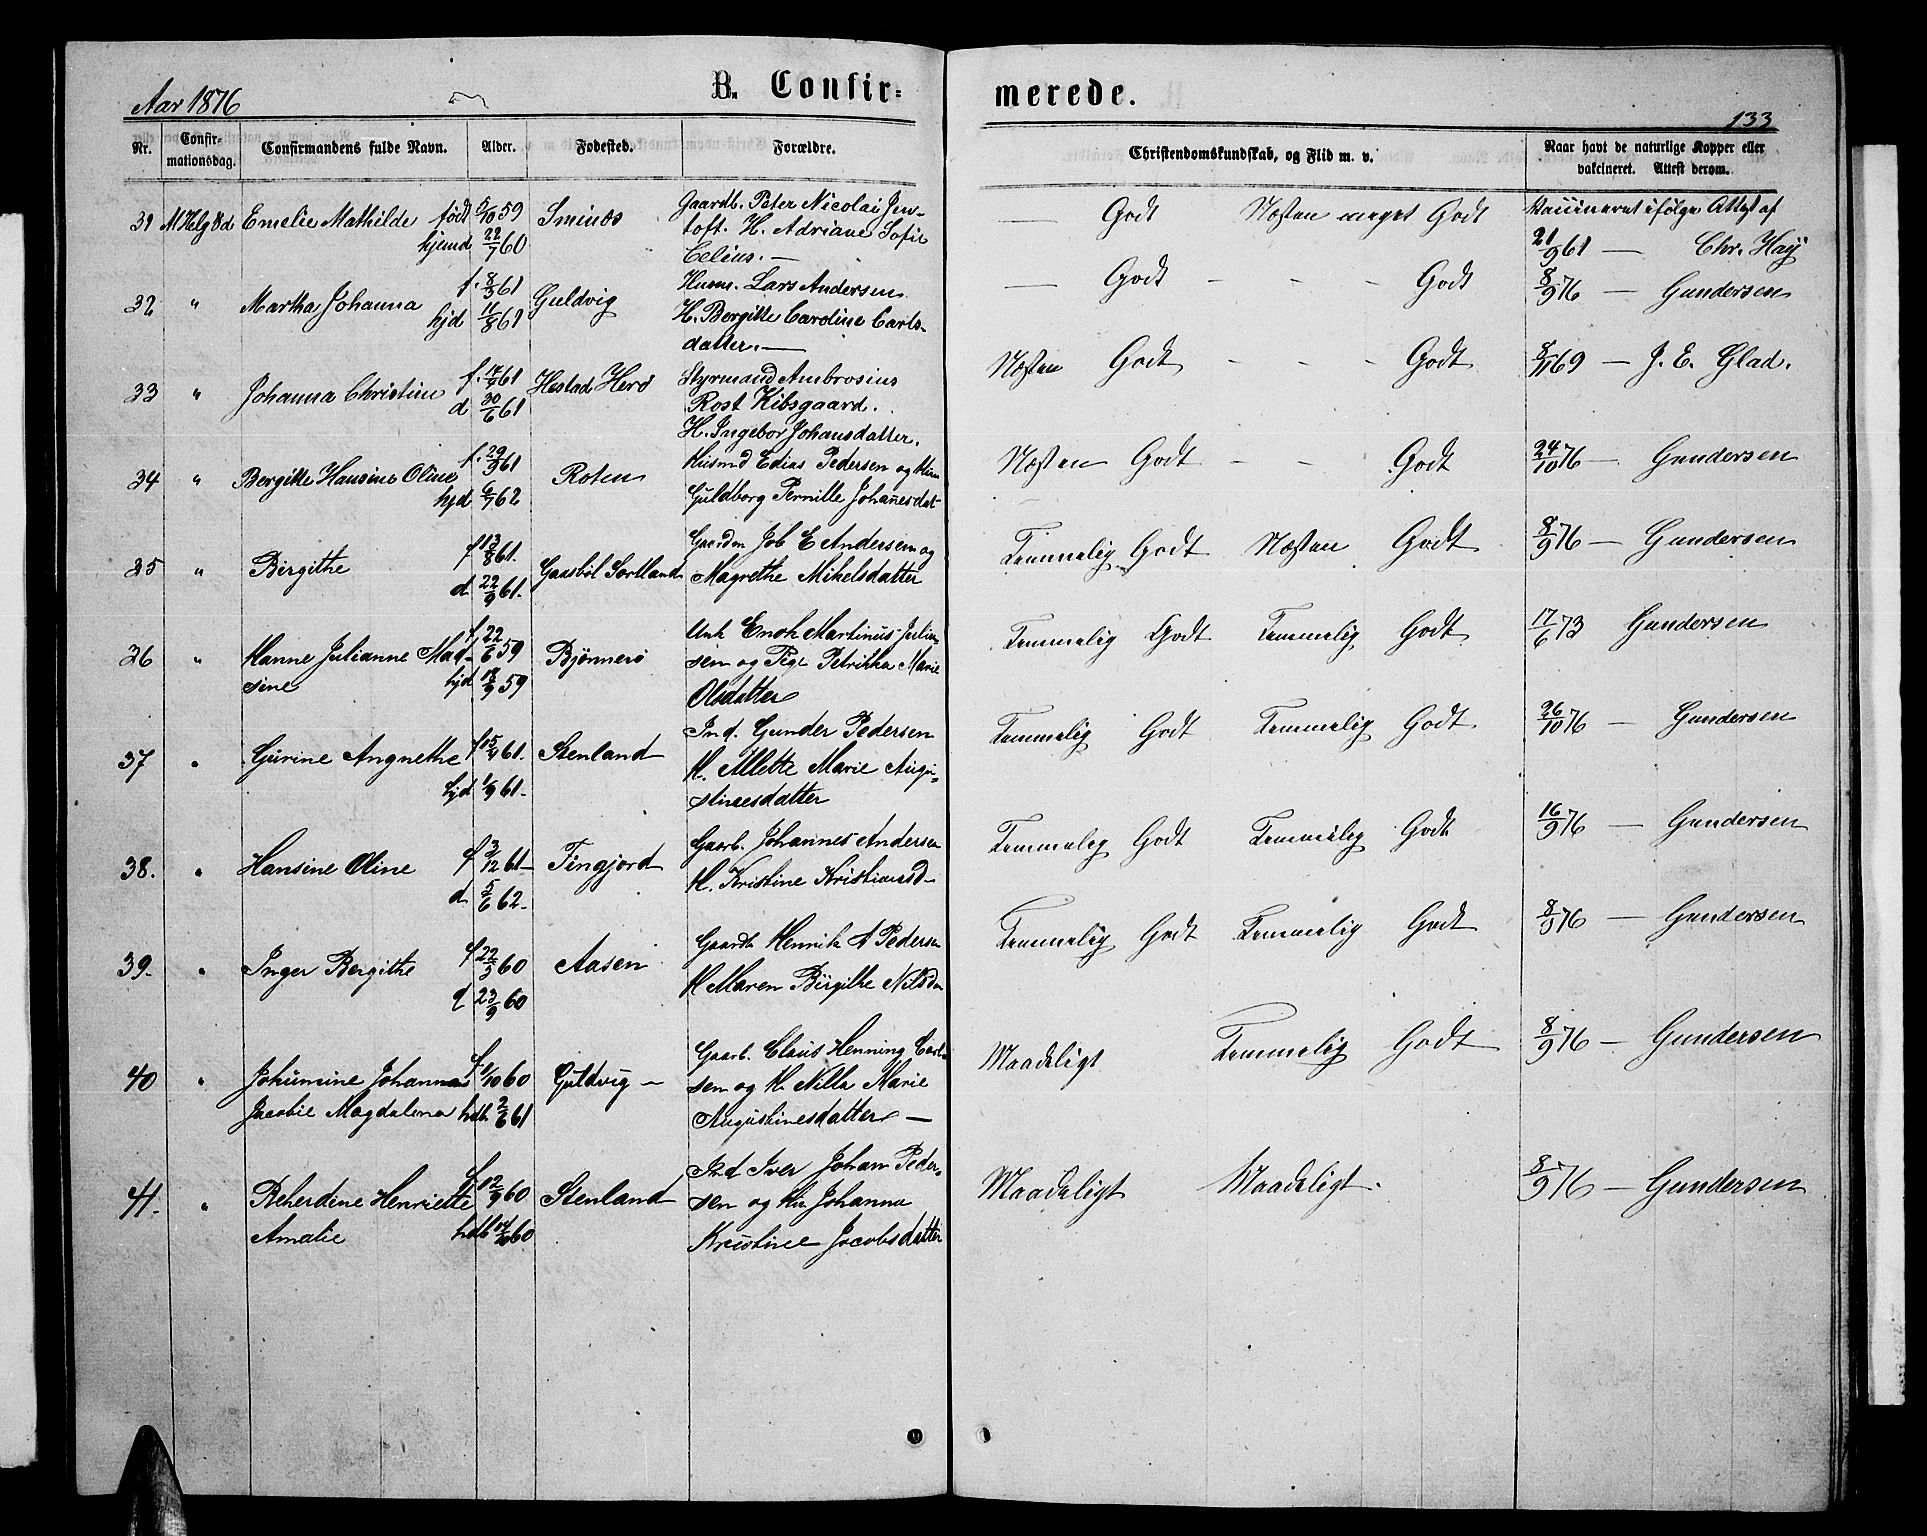 Aar 1876
B. Confir=
merede.
133
Nr.
Confir-
mationsdag.
Confirmandens fulde Navn.
Alder.
Fødested.
Forældre.
Christendomskundskab, og Flid m. v.
Naar havt de naturlige Kopper eller
vakcineret. Attest derom.
31 Emelie Mathilde født 5/10 59 Gaardb. Peter Nicolai Jen-
hjemd 22/7 60 toft. H. Adriane Sofie
Celius. —
— Godt Næsten meget Godt ifølge Attest af
21/9 61 — Chr. Hay
32 " Martha Johanna f. 8/3 61 Guldvig Husm. Lars Andersen
hjd 11/8 61 H. Bergitte Caroline Carls-
datter. —
— Godt - - - Godt 8/9 76 — Gundersen
33 " Johanna Christine f. 14/4 61 Hestad Herø Styrmand Ambrosius
d 30/6 61 Rost Kibsgaard.
H. Ingebor Johansdatter.
Næsten Godt - - Godt 69 — J. E. Glad.
34 " Bergitte Hansine Oline f. 29/9 61 Roten Husmd Edias Pedersen og
hjd 6/7 62 Guldborg Pernille Johanesdat
Næsten Godt - - Godt 24/10 76 — Gundersen
35 " Birgithe f 13/8 61. Gaasbøl Sortland Gaardm Job E Andersen og
d 22/9 61. Magrethe Mikelsdatter
Temmelig Godt Næsten Godt 8/9 76 — Gundersen
36 " Hanne Julianne Mad- f. 22/6 59 Bjønnerø Unk Enok Martinus Julian-
sine hjd 18/9 59 sen og Pige Petrikka Marie
Olsdatter
Temmelig Godt Temmelig Godt 17/6 73 Gundersen
37 " Gurine Angnethe f 15/4 61. Stenland Ind. Gunder Pedersen
hjd 1/9 61. H. Allette Marie Augu-
stinesdatter
Temmelig Godt Temmelig Godt 26/10 76 — Gundersen
38. " Hansine Oline f 3/12 61 — Tingjord Gaarb. Johannes Andersen
d 5/6 62. H. Kristine Kristiansd-
Temmelig Godt Temmelig Godt 16/9 76 — Gundersen
39. " Inger Bergithe f 22/3 60 Aasen Gaardb Henrik A Pedersen
d 23/9 60 H Maren Birgithe Nilsd
Temmelig Godt Temmelig Godt 8/9 76 — Gundersen
40 " Johanna f 1/10 60 Guldvig — Gaarb. Claus Henning Carl-
Jacobie Magdalena hdb 2/6 61 sen og H. Nilla Marie
Augustinesdatter —
Maadeligt Temmelig Godt 8/9 76 — Gundersen
41. " Beherdene Henriette f 12/9 60 Stenland Ind Iver Johan Peder-
Amalie hdb 60 sen og Johanna
Kristine Jacobsdatter
Maadeligt Maadeligt. 8/9 76 — Gundersen